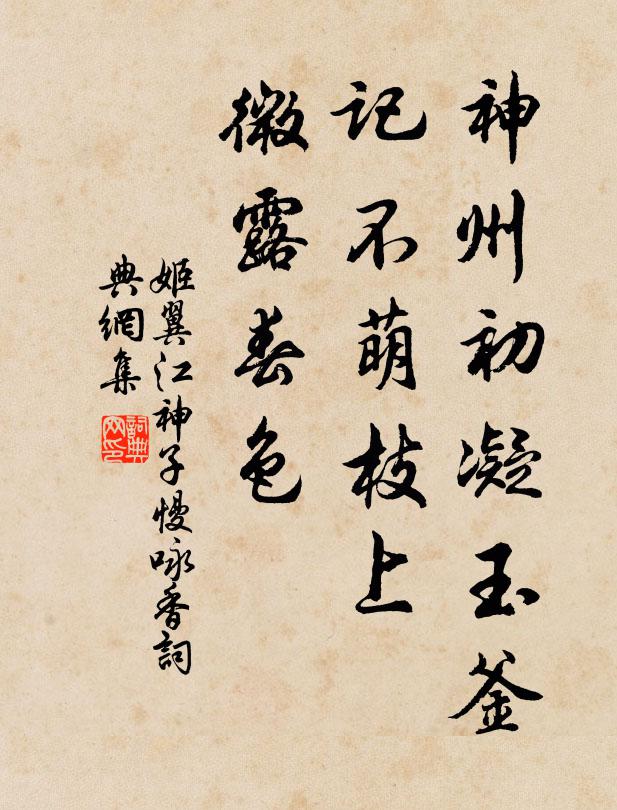 神州初凝玉釜
记不萌枝上
微露春色
姬翼江神子慢咏香词
典網集
詞典網印